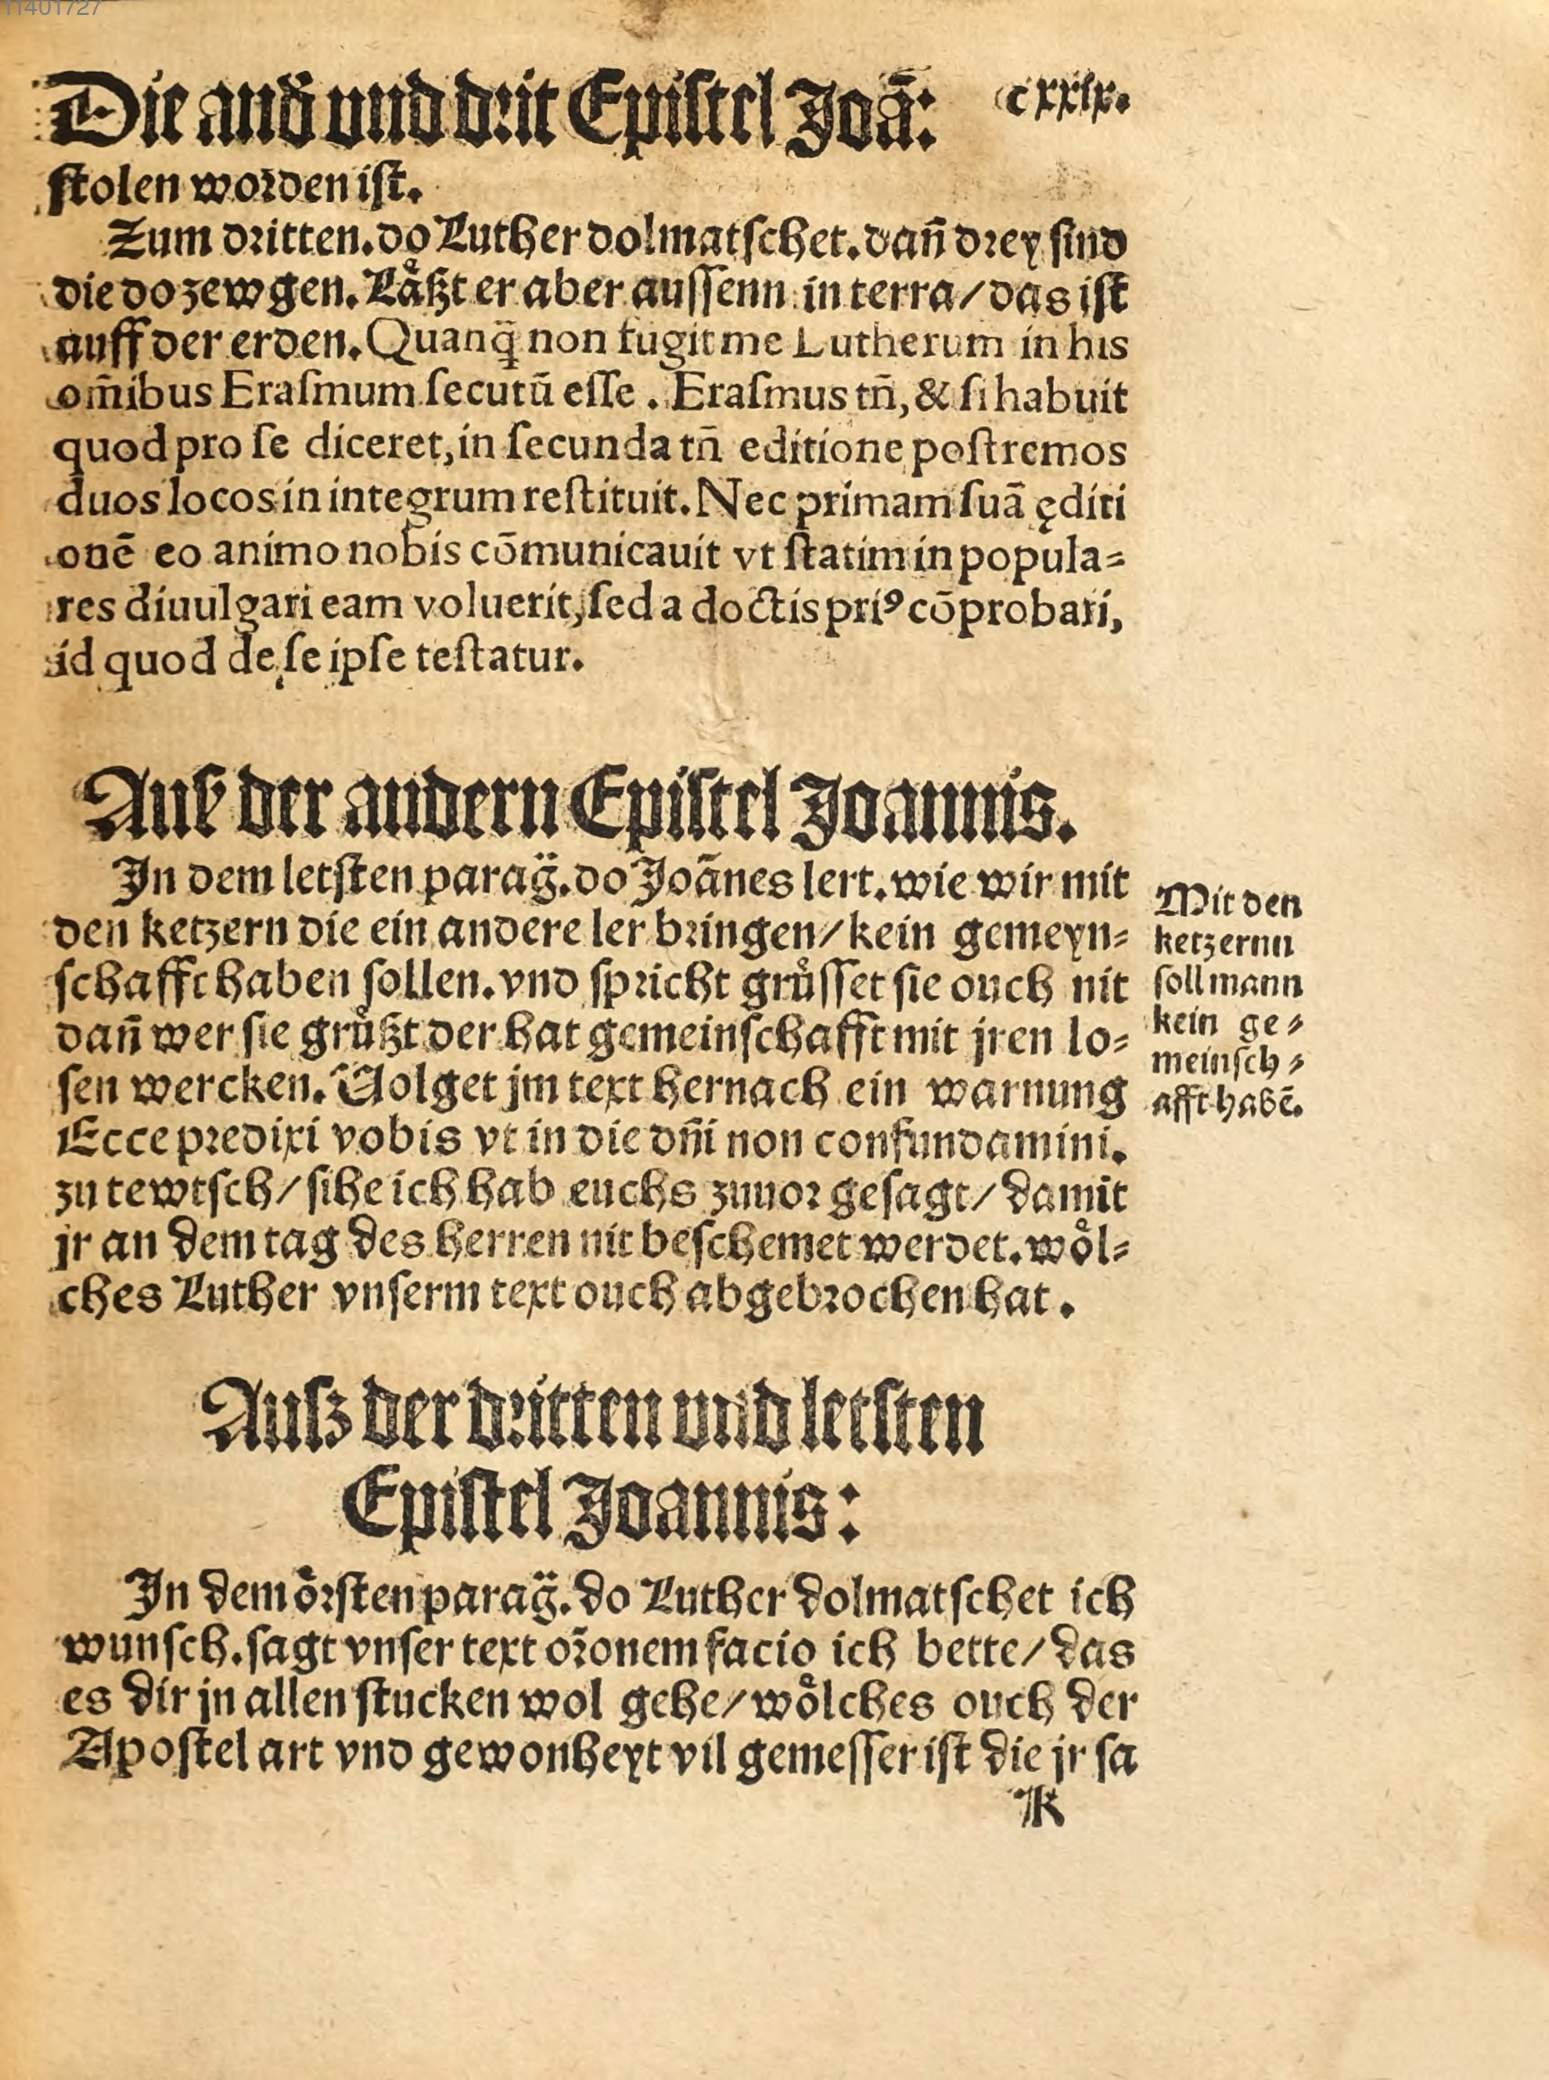 11401727
Die and̄ vnd drit Epistel Joā: cxxix.
stolen worden ist.
Zum dritten. do Luther dolmatschet. dañ drey sind
die do zewgen. Laͤßt er aber aussenn in terra/das ist
auff der erden. Quanq̄ non fugit me Lutherum in his
om̄ibus Erasmum secutū esse. Erasmus tñ, & si habuit
quod pro se diceret, in secunda tñ editione postremos
duos locos in integrum restituit. Nec primam suā ęditi
onē eo animo nobis cōmunicauit vt statim in popula⸗
res diuulgari eam voluerit, sed a doctis priꝰ cōprobari,
id quod de se ipse testatur.
Auß der andern Epistel Joannis.
In dem letsten parag̈. do Joānes lert. wie wir mit
den ketzern die ein andere ler bringen/kein gemeyn⸗
schafft haben sollen. vnd spricht gruͤsset sie ouch nit
dañ wer sie gruͤßt der hat gemeinschafft mit jren lo⸗
sen wercken. Volget jm text hernach ein warnung
Ecce predixi vobis vt in die dñi non confundamini.
zu tewtsch/sihe ich hab euchs zuuor gesagt/damit
jr an dem tag des herren nit beschemet werdet. woͤl⸗
ches Luther vnserm text ouch abgebrochen hat.
Mit den
ketzernn
soll mann
kein ge⸗
meinsch⸗
afft habē.
Ausz der dritten vnd letsten
Epistel Joannis:
In dem oͤrsten parag̈. do Luther dolmatschet ich
wunsch. sagt vnser text or̄onem facio ich bette/das
es dir jn allen stucken wol gehe/woͤlches ouch der
Apostel art vnd gewonheyt vil gemesser ist die jr sa
K